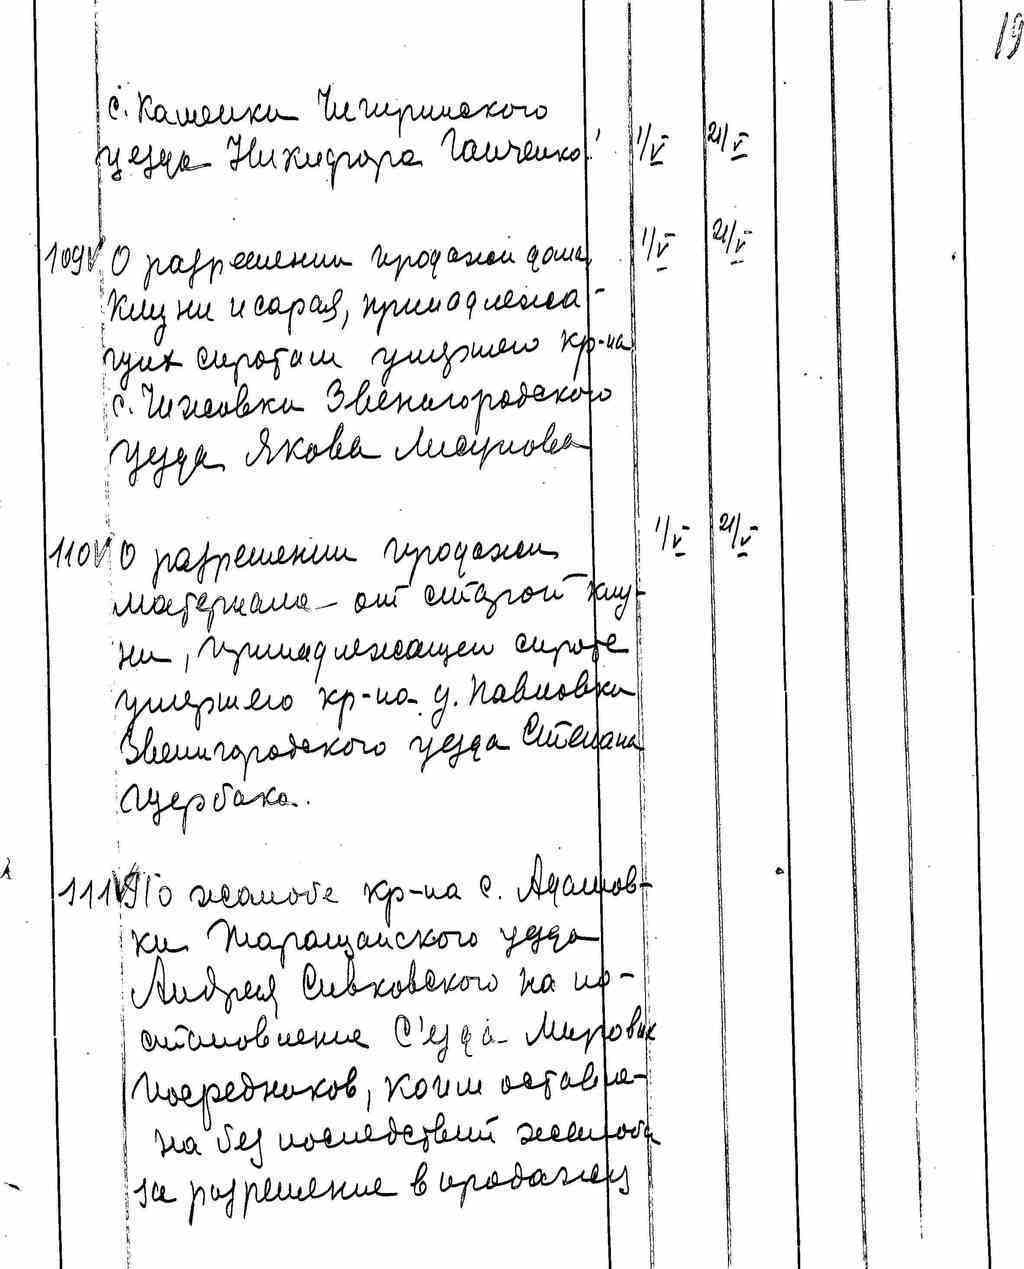 19
с. Каменки Чигиринского
уезда Никифора Ганченко. 1/V 21/V
109 О разрешении продажи дома, 1/V 21/V
клуни и сарая, принадлежа-
щих сиротам умершего кр-на
с. Чижовки Звенигородского
уезда Якова
110 О разрешении продажи 1/V 21/V
материала от старой клу-
ни, принадлежащей сироте
умершего кр-на д. Павловки
Звенигородского уезда Степана
Щербака.
111 По жалобе кр-на с. Адамов-
ки Таращанского уезда
Андрея Сивковского на по-
становление С'езда Мировых
посредников, коим оставле-
на без последствий жалоба
за разрешение в продажу